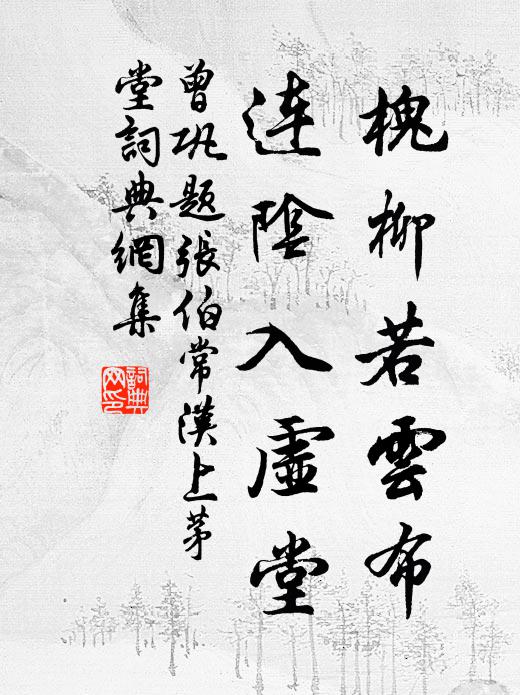 槐柳若雲布
連陰入虛堂
曾巩题張伯常漢上茅
堂詞典網集
詞典
网印